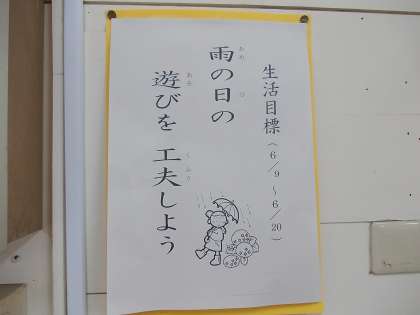 生活目標(6/9~6/20)
雨の日の
遊びを工夫しよう